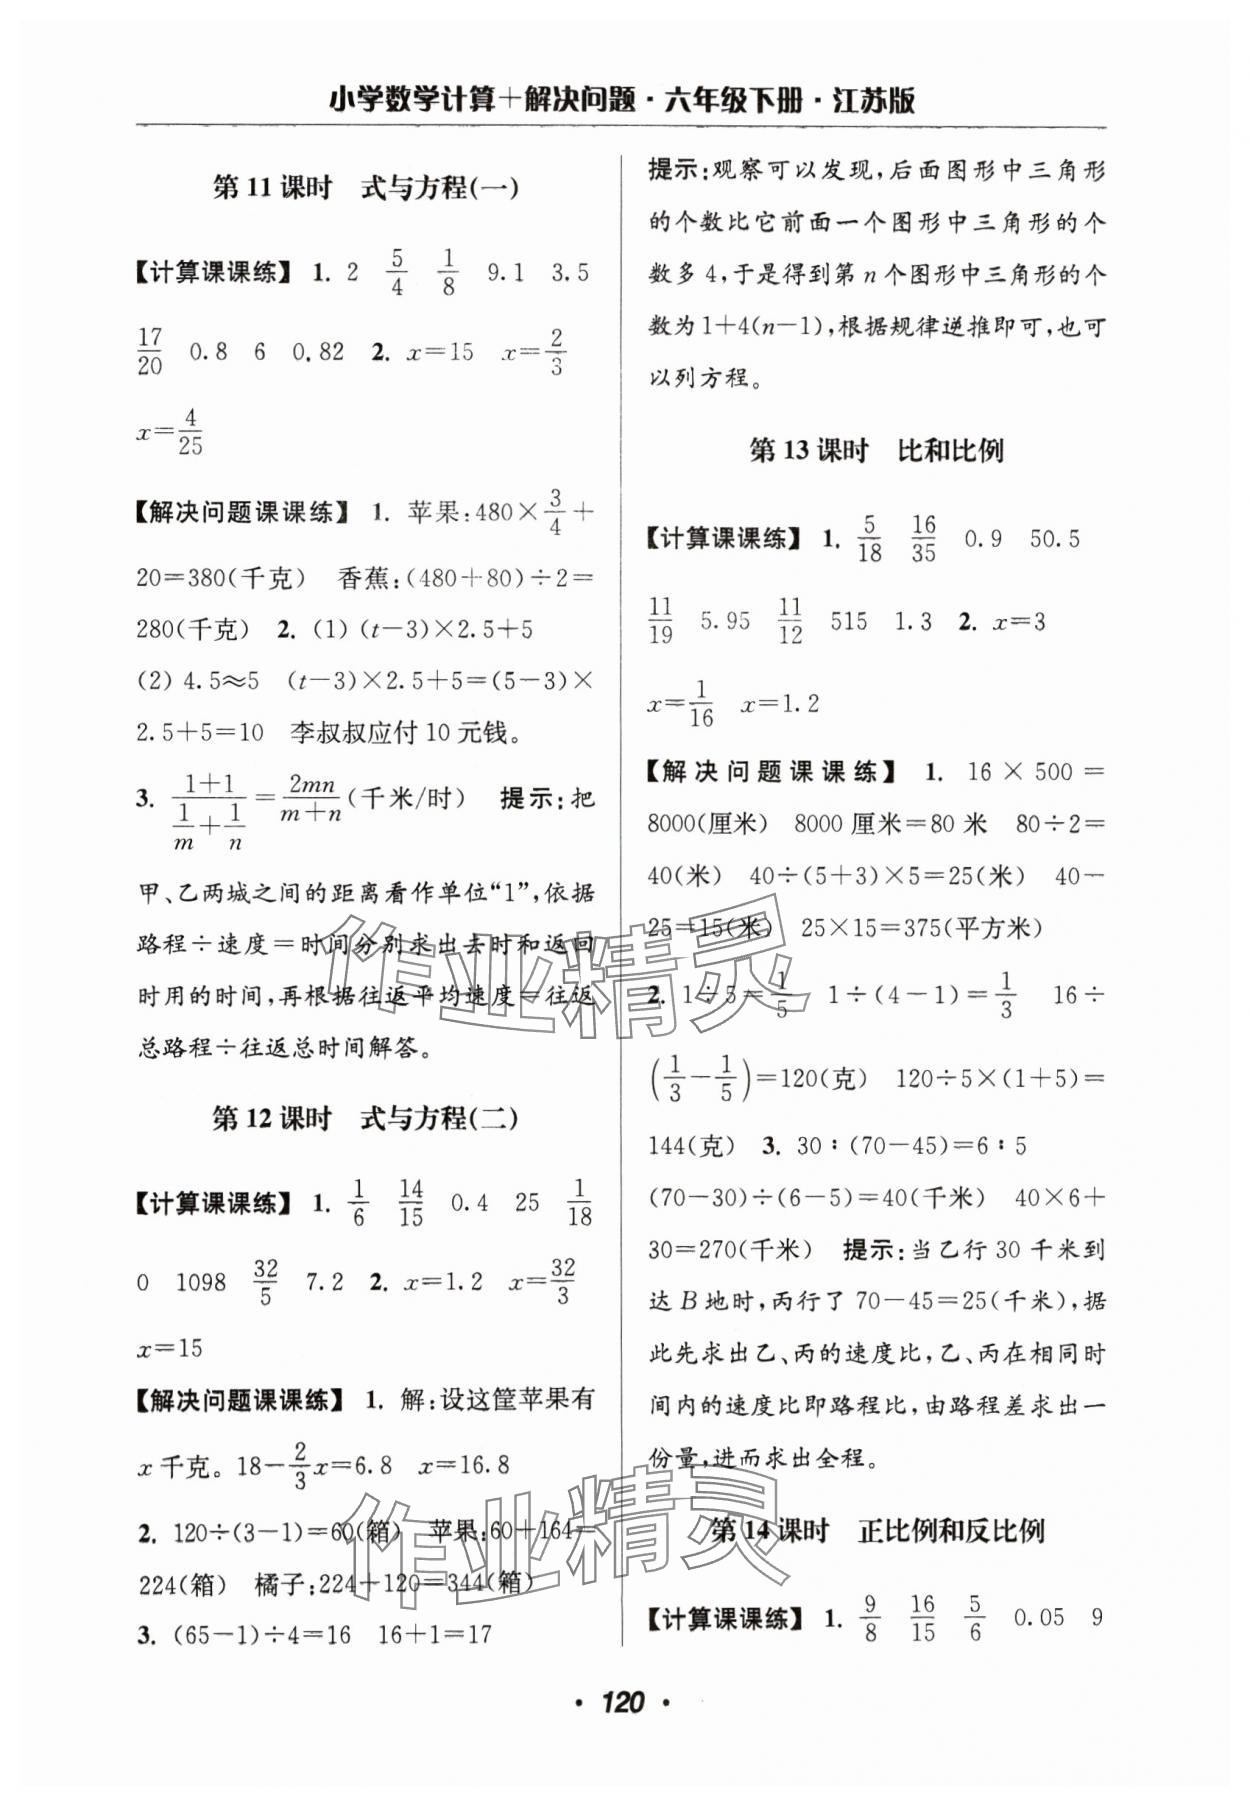 小学数学计算＋解决问题·六年级下册·江苏版
第11课时　式与方程(一)
【计算课课练】 1. 2　5/4　1/8　9.1　3.5
17/20　0.8　6　0.82　2. x=15　x=2/3
x=4/25
【解决问题课课练】 1. 苹果:480×3/4+
20=380(千克)　香蕉:(480+80)÷2=
280(千克)　2. (1) (t-3)×2.5+5
(2) 4.5≈5　(t-3)×2.5+5=(5-3)×
2.5+5=10　李叔叔应付10元钱。
3. (1+1)/(1/m+1/n)=2mn/(m+n)(千米/时)　提示:把
甲、乙两城之间的距离看作单位“1”,依据
路程÷速度=时间分别求出去时和返回
时用的时间,再根据往返平均速度=往返
总路程÷往返总时间解答。
第12课时　式与方程(二)
【计算课课练】 1. 1/6　14/15　0.4　25　1/18
0　1098　32/5　7.2　2. x=1.2　x=32/3
x=15
【解决问题课课练】 1. 解:设这筐苹果有
x千克。18-2/3x=6.8　x=16.8
2. 120÷(3-1)=60(箱)　苹果:60+164=
224(箱)　橘子:224+120=344(箱)
3. (65-1)÷4=16　16+1=17
提示:观察可以发现,后面图形中三角形
的个数比它前面一个图形中三角形的个
数多4,于是得到第n个图形中三角形的个
数为1+4(n-1),根据规律逆推即可,也可
以列方程。
第13课时　比和比例
【计算课课练】 1. 5/18　16/35　0.9　50.5
11/19　5.95　11/12　515　1.3　2. x=3
x=1/16　x=1.2
【解决问题课课练】 1. 16×500=
8000(厘米)　8000厘米=80米　80÷2=
40(米)　40÷(5+3)×5=25(米)　40-
25=15(米)　25×15=375(平方米)
2. 1÷5=1/5　1÷(4-1)=1/3　16÷
(1/3-1/5)=120(克)　120÷5×(1+5)=
144(克)　3. 30∶(70-45)=6∶5
(70-30)÷(6-5)=40(千米)　40×6+
30=270(千米)　提示:当乙行30千米到
达B地时,丙行了70-45=25(千米),据
此先求出乙、丙的速度比,乙、丙在相同时
间内的速度比即路程比,由路程差求出一
份量,进而求出全程。
第14课时　正比例和反比例
【计算课课练】 1. 9/8　16/15　5/6　0.05　9
· 120 ·
作业精灵
作业精灵